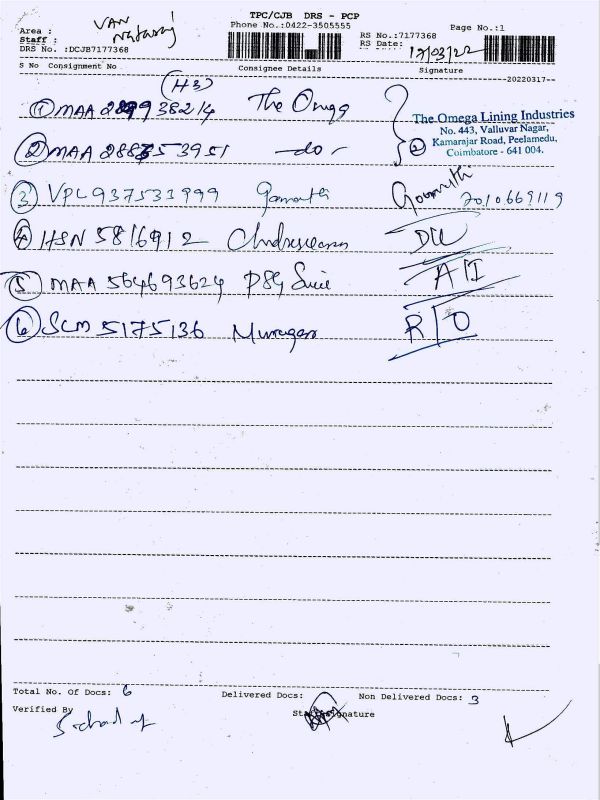 TPC/CJB DRS - PCP
Phone No.:0422-3505555
Page No.:1
Area : VAN
Staff : Nataraj
DRS No. :DCJB7177368
RS No.:7177368
RS Date: 17/03/22
S No Consignment No
Consignee Details
Signature
20220317
(H3)
1 MAA 289938214 The Omega
The Omega Lining Industries
No. 443, Valluvar Nagar,
Kamarajar Road, Peelamedu,
Coimbatore - 641 004.
2 MAA 288753951 -do-
3 VPL937533999 Gomathi Gomathi 7010669119
4 HSN 5816912 D/L
5 MAA 564693624 PSG A/I
6 SCM 5175136 Murugan R/O
Total No. Of Docs: 6
Delivered Docs:
Non Delivered Docs: 3
Verified By
Staff Signature